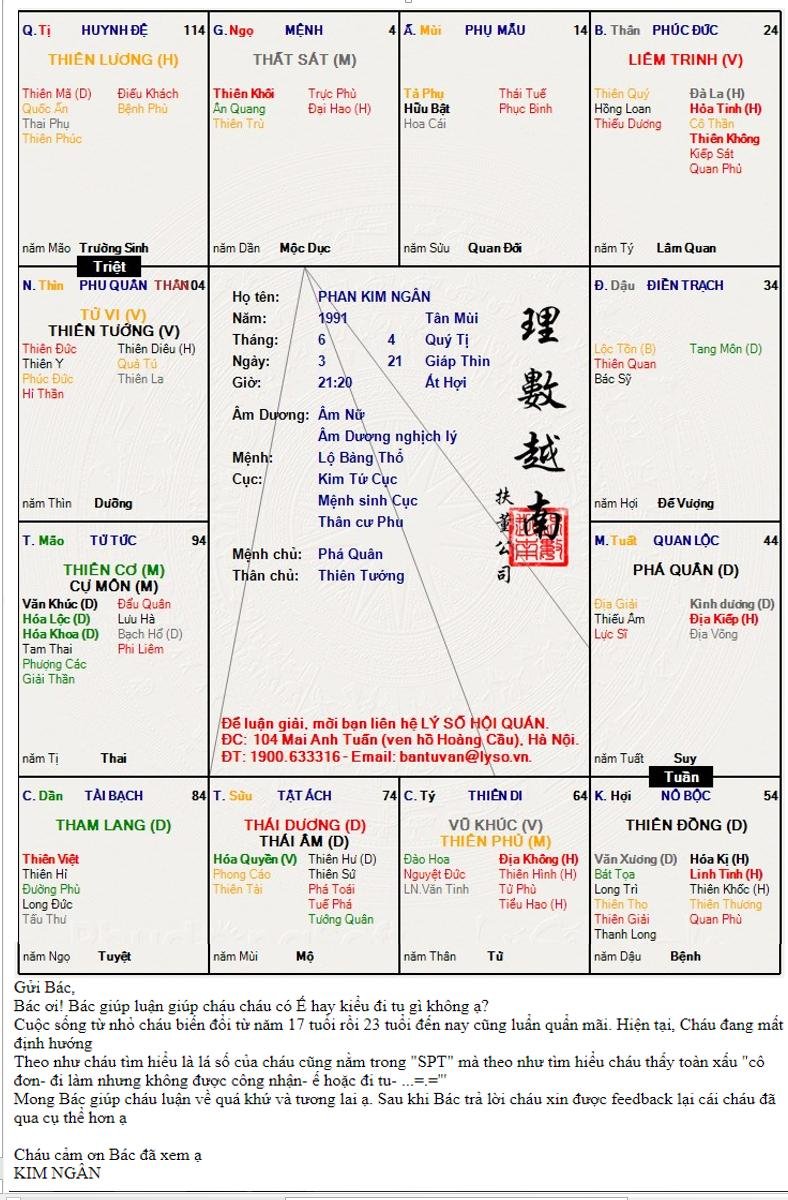 Q. Tị HUYNH ĐỆ 114
THIÊN LƯƠNG (H)
Thiên Mã (D) Điếu Khách
Quốc Ấn Bệnh Phù
Thai Phụ
Thiên Phúc
năm Mão Trường Sinh
G. Ngọ MỆNH 4
THẤT SÁT (M)
Thiên Khôi Trực Phù
Ân Quang Đại Hao (H)
Thiên Trù
năm Dần Mộc Dục
Ấ. Mùi PHỤ MẪU 14
Tả Phụ Thái Tuế
Hữu Bật Phục Binh
Hoa Cái
năm Sửu Quan Đới
B. Thân PHÚC ĐỨC 24
LIÊM TRINH (V)
Thiên Quý Đà La (H)
Hồng Loan Hỏa Tinh (H)
Thiếu Dương Cô Thần
Thiên Không
Kiếp Sát
Quan Phủ
năm Tý Lâm Quan
Triệt
N. Thìn PHU QUÂN THÂN 104
TỬ VI (V)
THIÊN TƯỚNG (V)
Thiên Đức Thiên Diêu (H)
Thiên Y Quả Tú
Phúc Đức Thiên La
Hỉ Thần
năm Thìn Dưỡng
Họ tên: PHAN KIM NGÂN
Năm: 1991 Tân Mùi
Tháng: 6 4 Quý Tị
Ngày: 3 21 Giáp Thìn
Giờ: 21:20 Ất Hợi
Âm Dương: Âm Nữ
Âm Dương nghịch lý
Mệnh: Lộ Bàng Thổ
Cục: Kim Tứ Cục
Mệnh sinh Cục
Thân cư Phu
Mệnh chủ: Phá Quân
Thân chủ: Thiên Tướng
理數越南
扶董公司
Để luận giải, mời bạn liên hệ LÝ SỐ HỘI QUÁN.
ĐC: 104 Mai Anh Tuấn (ven hồ Hoàng Cầu), Hà Nội.
ĐT: 1900.633316 - Email: bantuvan@lyso.vn.
Đ. Dậu ĐIỀN TRẠCH 34
Lộc Tồn (B) Tang Môn (D)
Thiên Quan
Bác Sỹ
năm Hợi Đế Vượng
T. Mão TỬ TỨC 94
THIÊN CƠ (M)
CỰ MÔN (M)
Văn Khúc (D) Đẩu Quân
Hóa Lộc (D) Lưu Hà
Hóa Khoa (D) Bạch Hổ (D)
Tam Thai Phi Liêm
Phượng Các
Giải Thần
năm Tị Thai
M. Tuất QUAN LỘC 44
PHÁ QUÂN (D)
Địa Giải Kình dương (D)
Thiếu Âm Địa Kiếp (H)
Lực Sĩ Địa Võng
năm Tuất Suy
Tuần
C. Dần TÀI BẠCH 84
THAM LANG (D)
Thiên Việt
Thiên Hỉ
Đường Phù
Long Đức
Tấu Thư
năm Ngọ Tuyệt
T. Sửu TẬT ÁCH 74
THÁI DƯƠNG (D)
THÁI ÂM (D)
Hóa Quyền (V) Thiên Hư (D)
Phong Cáo Thiên Sứ
Thiên Tài Phá Toái
Tuế Phá
Tướng Quân
năm Mùi Mộ
C. Tý THIÊN DI 64
VŨ KHÚC (V)
THIÊN PHỦ (M)
Đào Hoa Địa Không (H)
Nguyệt Đức Thiên Hình (H)
LN.Văn Tinh Tử Phù
Tiểu Hao (H)
năm Thân Tử
K. Hợi NÔ BỘC 54
THIÊN ĐỒNG (D)
Văn Xương (D) Hóa Kị (H)
Bát Tọa Linh Tinh (H)
Long Trì Thiên Khốc (H)
Thiên Thọ Thiên Thương
Thiên Giải Quan Phù
Thanh Long
năm Dậu Bệnh
Gửi Bác,
Bác ơi! Bác giúp luận giúp cháu cháu có Ế hay kiểu đi tu gì không ạ?
Cuộc sống từ nhỏ cháu biến đổi từ năm 17 tuổi rồi 23 tuổi đến nay cũng luẩn quẩn mãi. Hiện tại, Cháu đang mất
định hướng
Theo như cháu tìm hiểu là lá số của cháu cũng nằm trong "SPT" mà theo như tìm hiểu cháu thấy toàn xấu "cô
đơn- đi làm nhưng không được công nhận- ế hoặc đi tu- ...=.="'
Mong Bác giúp cháu luận về quá khứ và tương lai ạ. Sau khi Bác trả lời cháu xin được feedback lại cái cháu đã
qua cụ thể hơn ạ
Cháu cảm ơn Bác đã xem ạ
KIM NGÂN